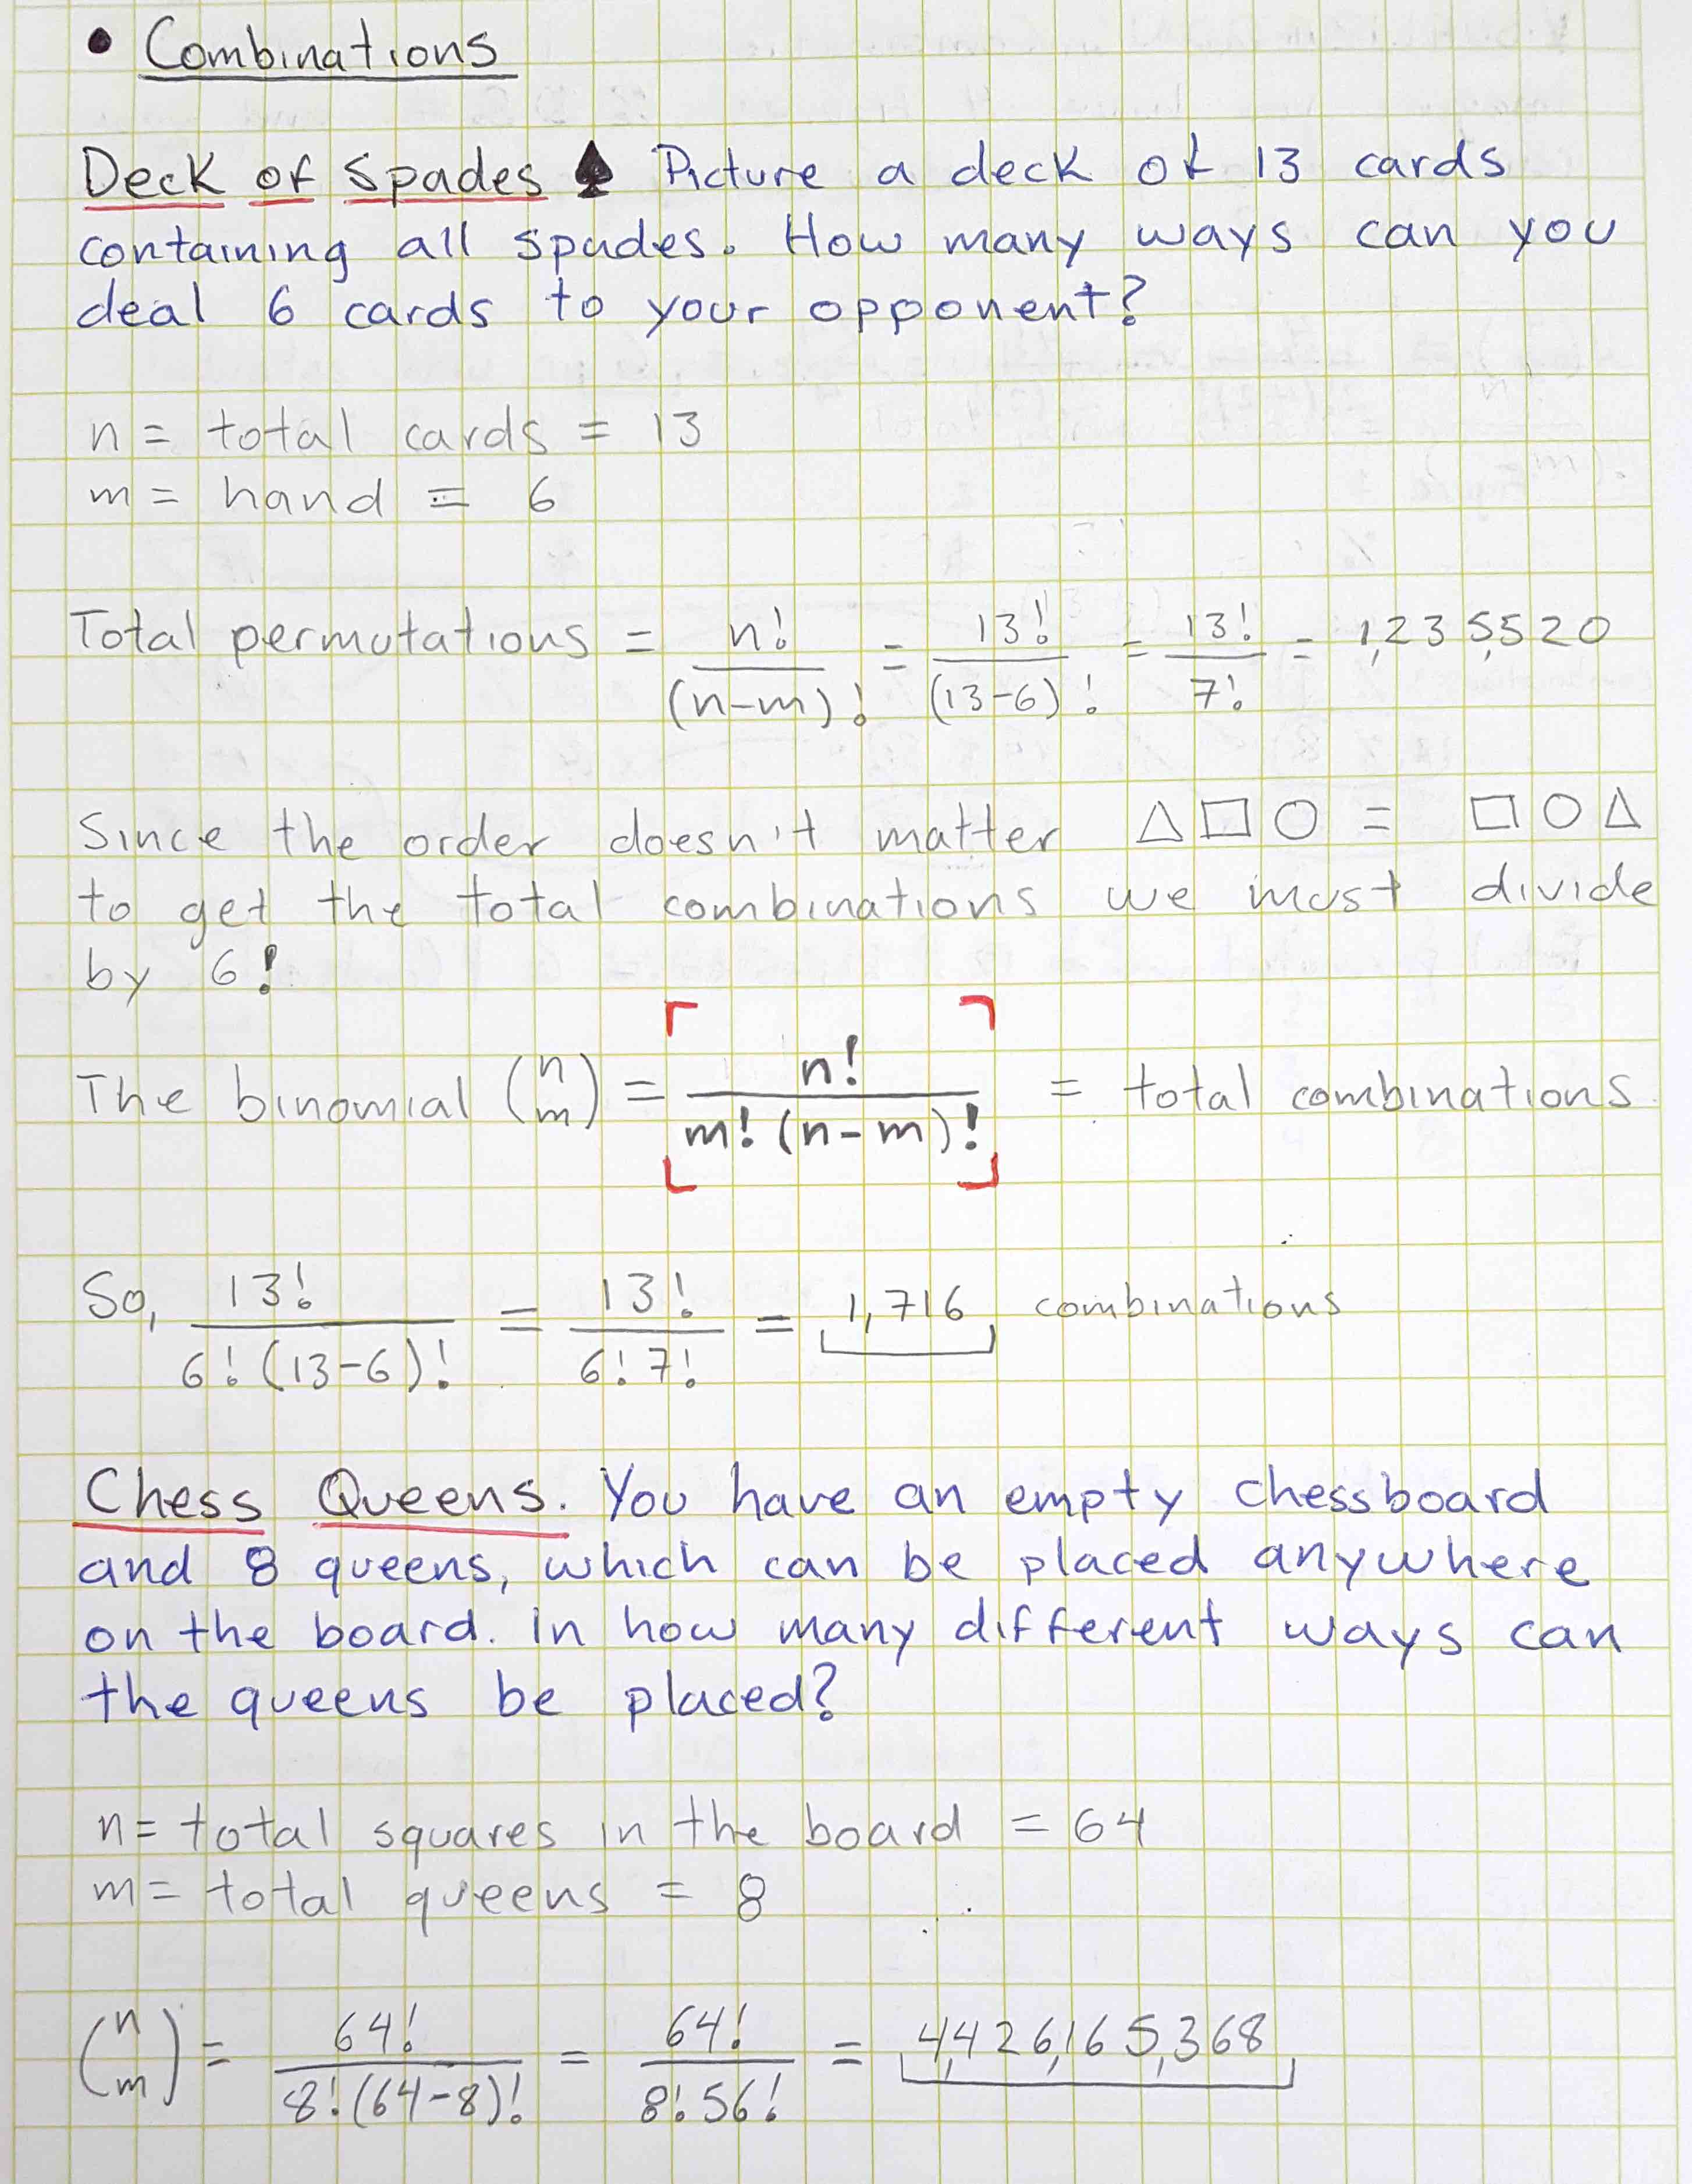 • Combinations
Deck of Spades ♠ Picture a deck of 13 cards
containing all spades. How many ways can you
deal 6 cards to your opponent?
n = total cards = 13
m = hand = 6
Total permutations = n! / (n-m)! = 13! / (13-6)! = 13! / 7! = 1,235,520
Since the order doesn't matter △□○ = □○△
to get the total combinations we must divide
by 6!
The binomial (n m) = n! / m!(n-m)! = total combinations
So, 13! / 6!(13-6)! = 13! / 6!7! = 1,716 combinations
Chess Queens. You have an empty chessboard
and 8 queens, which can be placed anywhere
on the board. In how many different ways can
the queens be placed?
n = total squares in the board = 64
m = total queens = 8
(n m) = 64! / 8!(64-8)! = 64! / 8!56! = 4,426,165,368